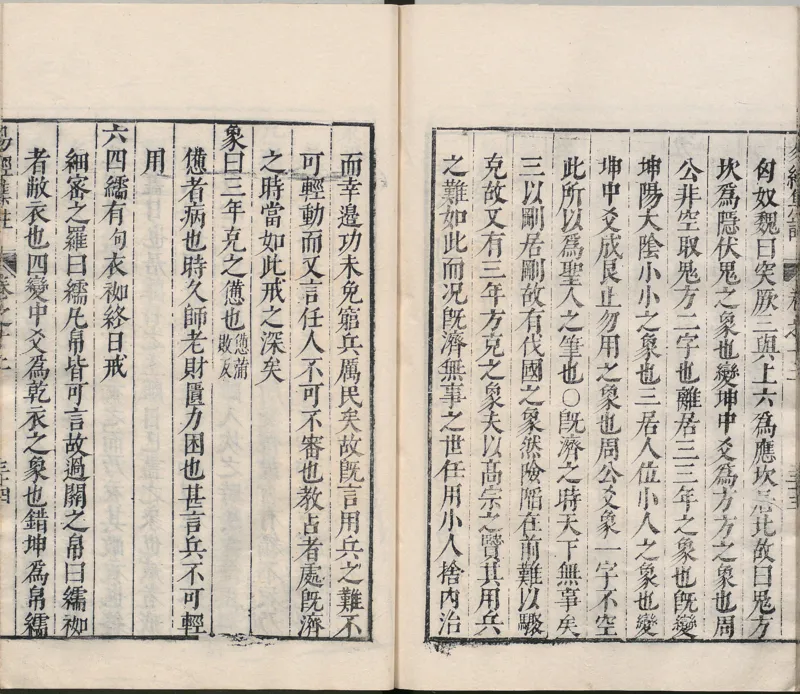 匈奴魏曰突厥三與上六爲應坎居北故曰鬼方
坎爲隱伏鬼之象也變坤中爻爲方方之象也周
公非空取鬼方二字也離居三三年之象也旣變
坤陽大陰小小之象也三居人位小人之象也變
坤中爻成艮止勿用之象也周公爻象一字不空
此所以爲聖人之筆也○旣濟之時天下無事矣
三以剛居剛故有伐國之象然險陷在前難以驟
克故又有三年方克之象夫以高宗之賢其用兵
之難如此而况旣濟無事之世任用小人捨內治
而幸邊功未免窮兵厲民矣故旣言用兵之難不
可輕動而又言任人不可不審也教占者處旣濟
之時當如此戒之深矣
象曰三年克之憊也憊蒲敗反
憊者病也時久師老財匱力困也甚言兵不可輕
用
六四繻有句衣袽終日戒
細審之羅曰繻凡帛皆可言故過關之帛曰繻袽
者敝衣也四變中爻爲乾衣之象也錯坤爲帛繻
易經集註
卷之十二
三十四